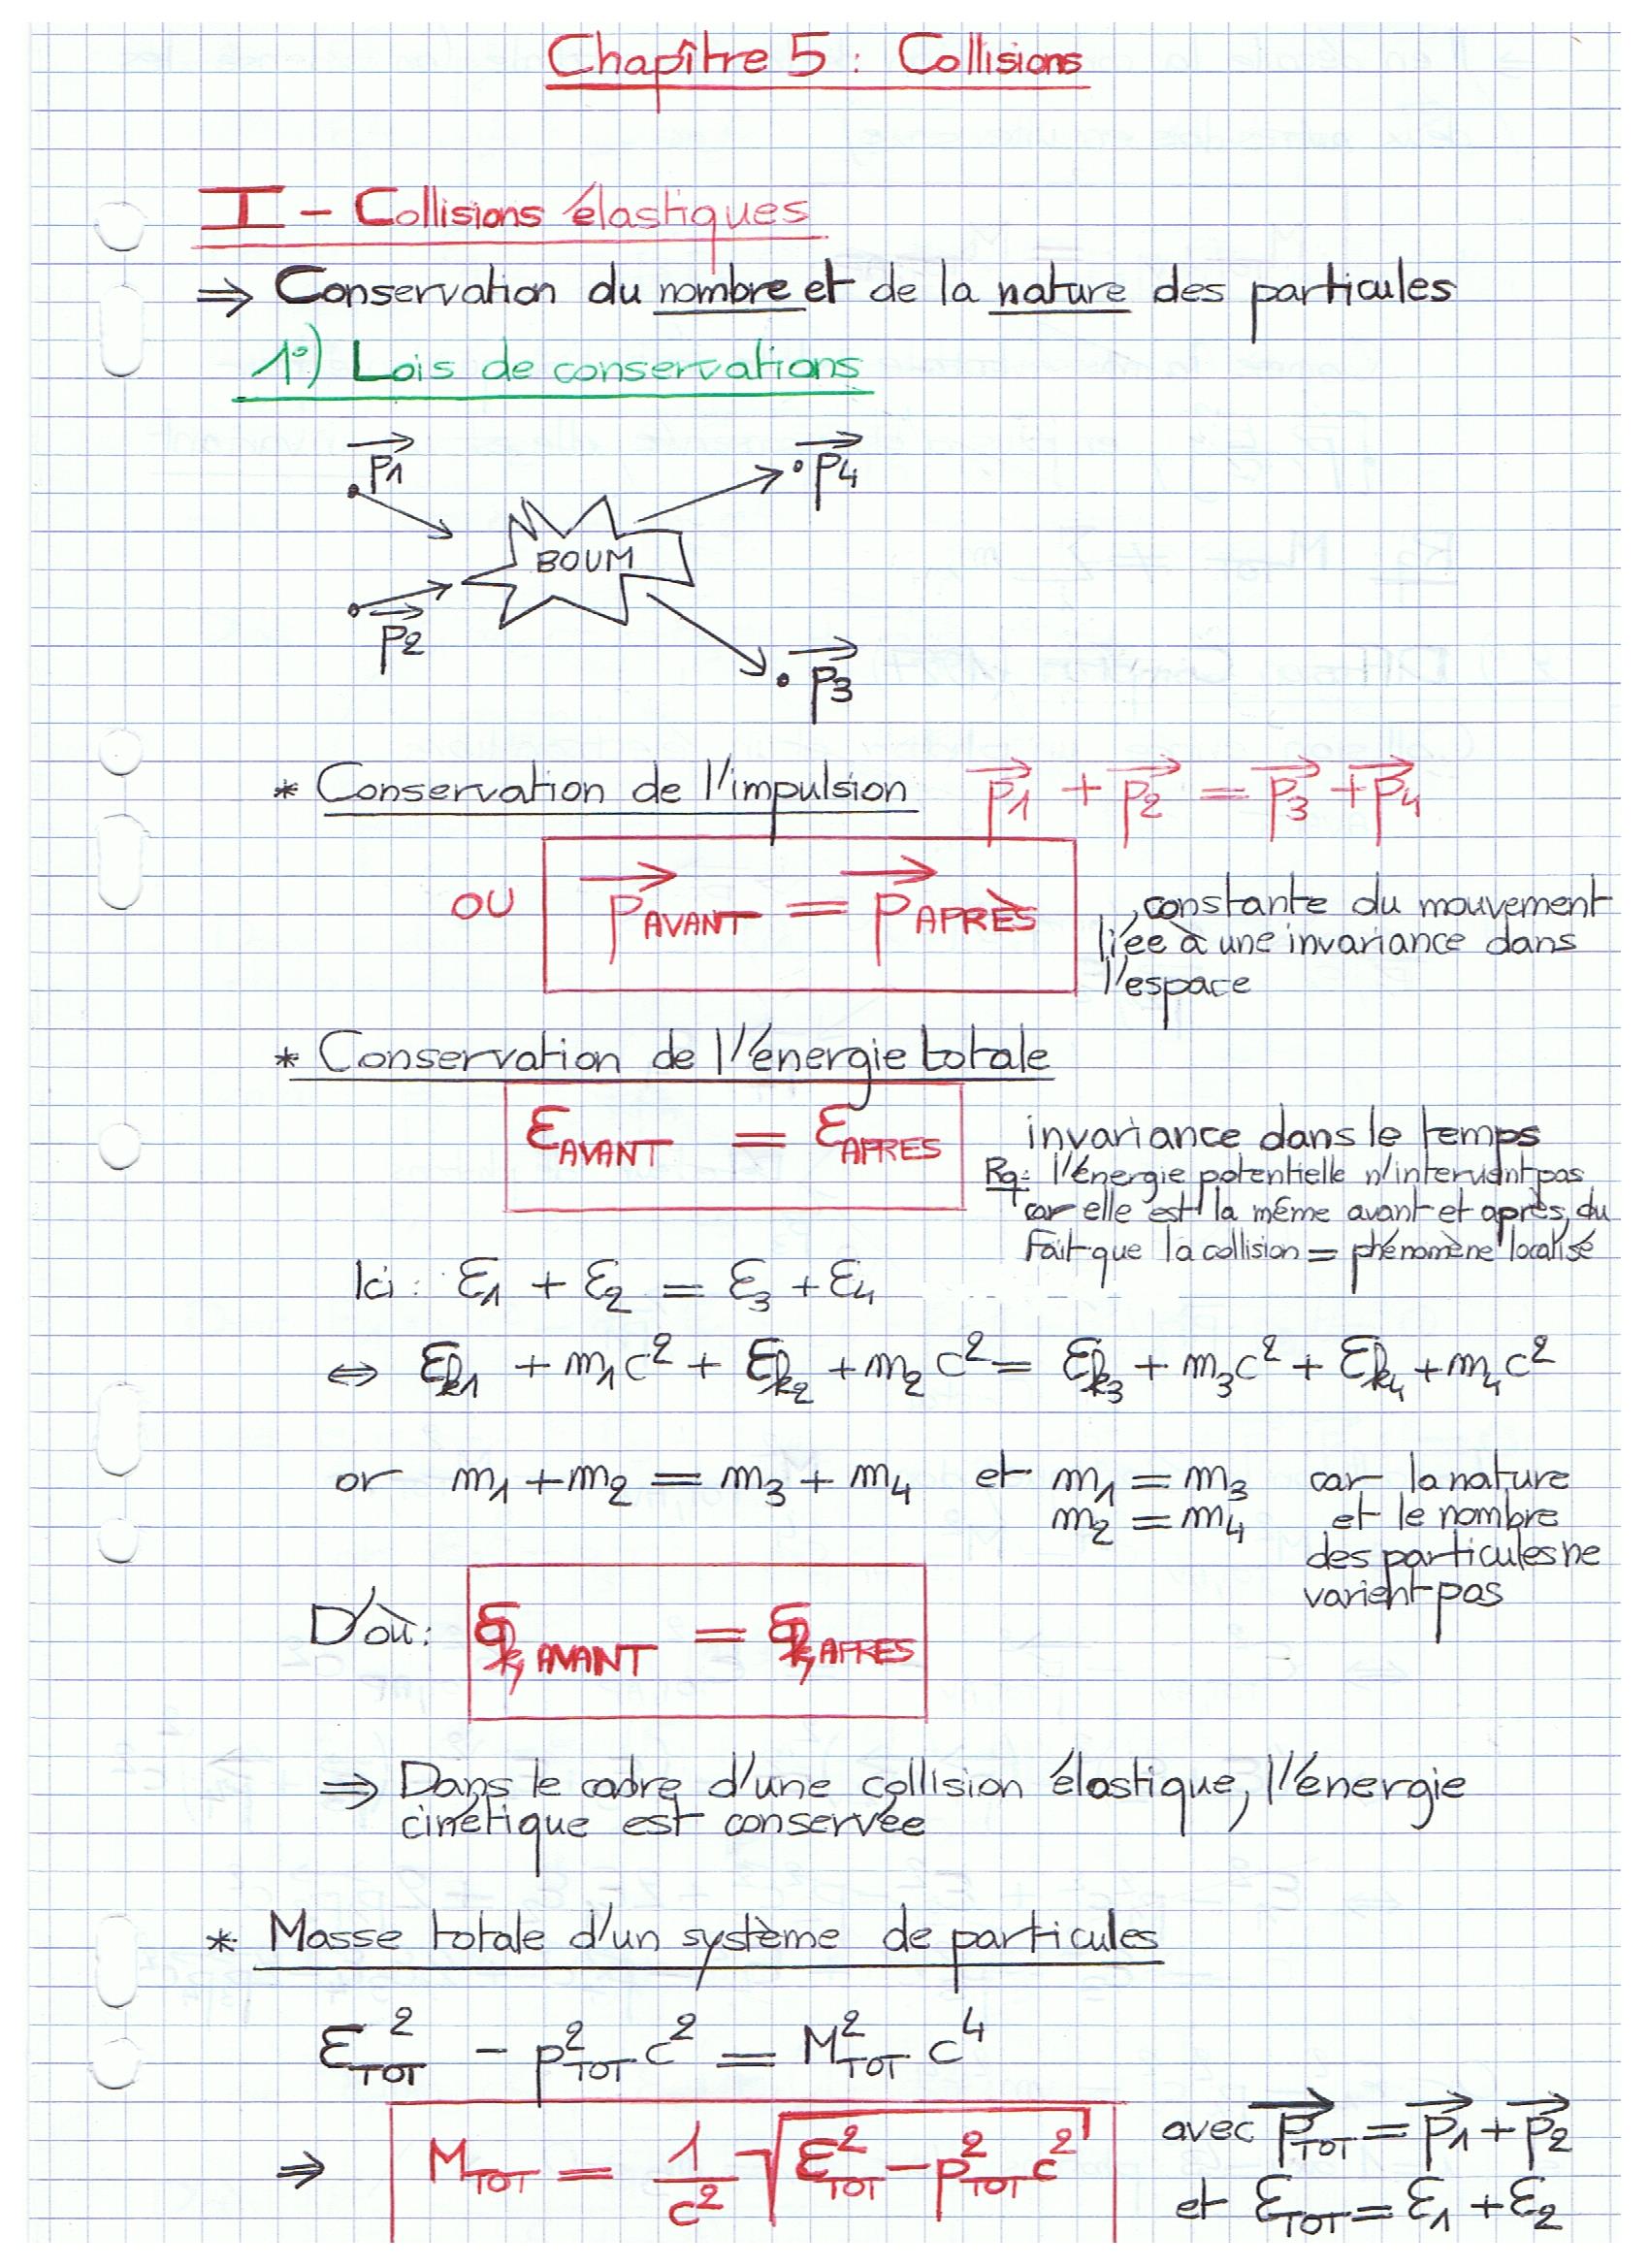 Chapître 5 : Collisions
I - Collisions élastiques
⇒ Conservation du nombre et de la nature des particules
1°) Lois de conservations
p1→
p4→
BOUM
p2→
p3→
* Conservation de l'impulsion p1→ + p2→ = p3→ + p4→
OU p→AVANT = p→APRÈS , constante du mouvement
liée à une invariance dans
l'espace
* Conservation de l'énergie totale
ε_AVANT = ε_APRES invariance dans le temps
Rq: l'énergie potentielle n'intervient pas
car elle est la même avant et après, du
Fait que la collision = phénomène localisé
Ici : ε1 + ε2 = ε3 + ε4
⇔ εk1 + m1c² + εk2 + m2c² = εk3 + m3c² + εk4 + m4c²
or m1 + m2 = m3 + m4 et m1 = m3 car la nature
m2 = m4 et le nombre
des particules ne
varient pas
D'où: εk,AVANT = εk,APRES
⇒ Dans le cadre d'une collision élastique, l'énergie
cinétique est conservée
* Masse totale d'un système de particules
ε²TOT - p²TOT c² = M²TOT c⁴
⇒ MTOT = 1/c² √(ε²TOT - p²TOT c²) avec p→TOT = p1→ + p2→
et εTOT = ε1 + ε2